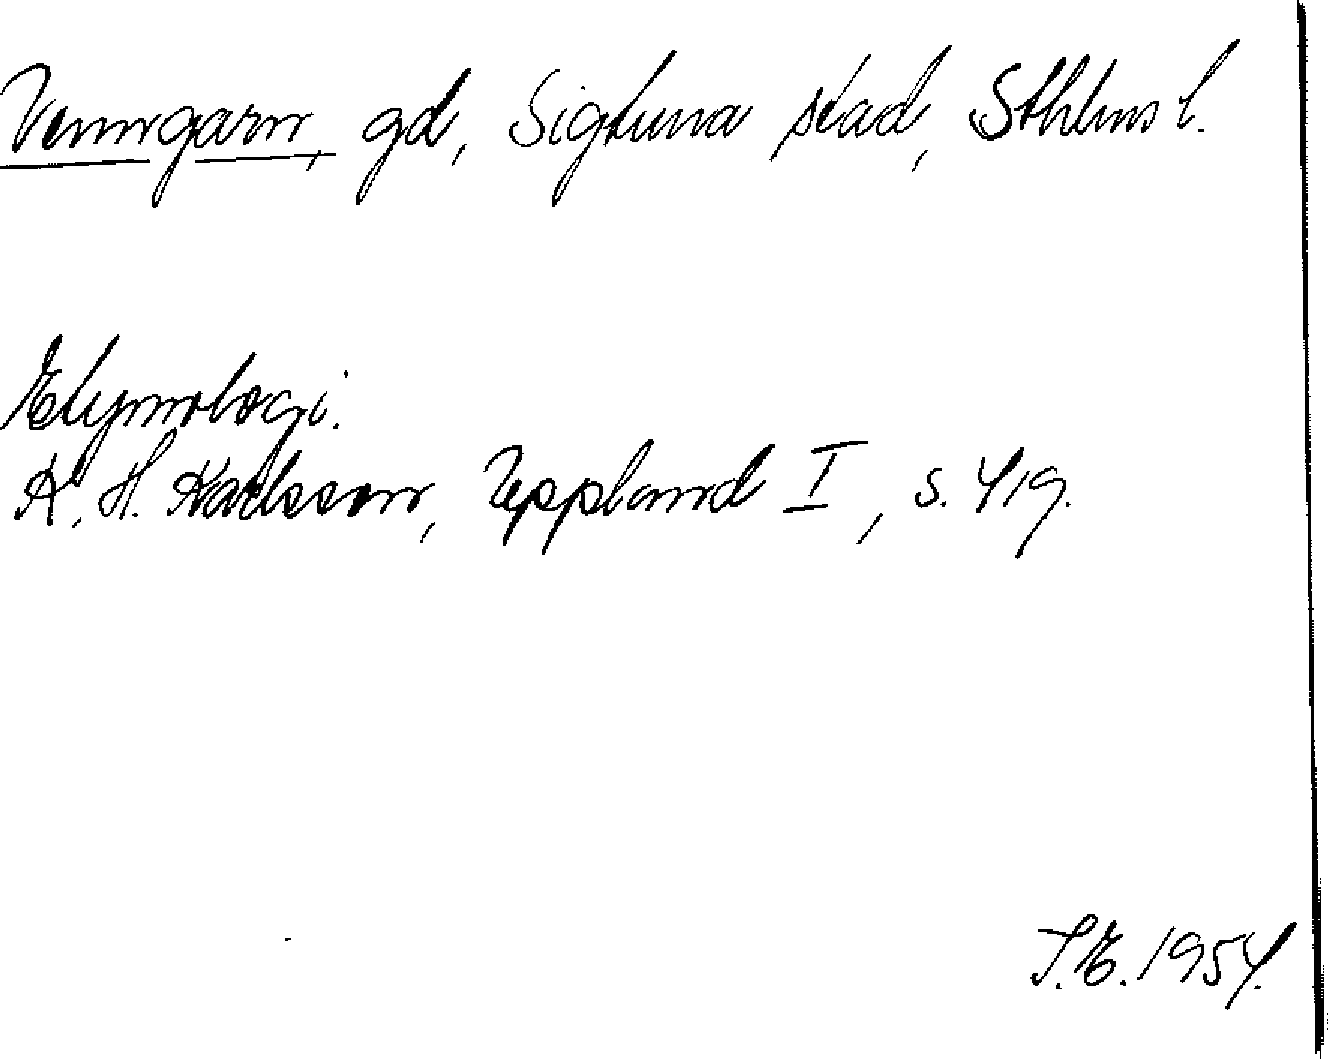 Venngarn, gd, Sigtuna stad, Sthlms l.
Etymologi.
K. H. Karlsson, Uppland I, s. 419.
T.E. 1954.